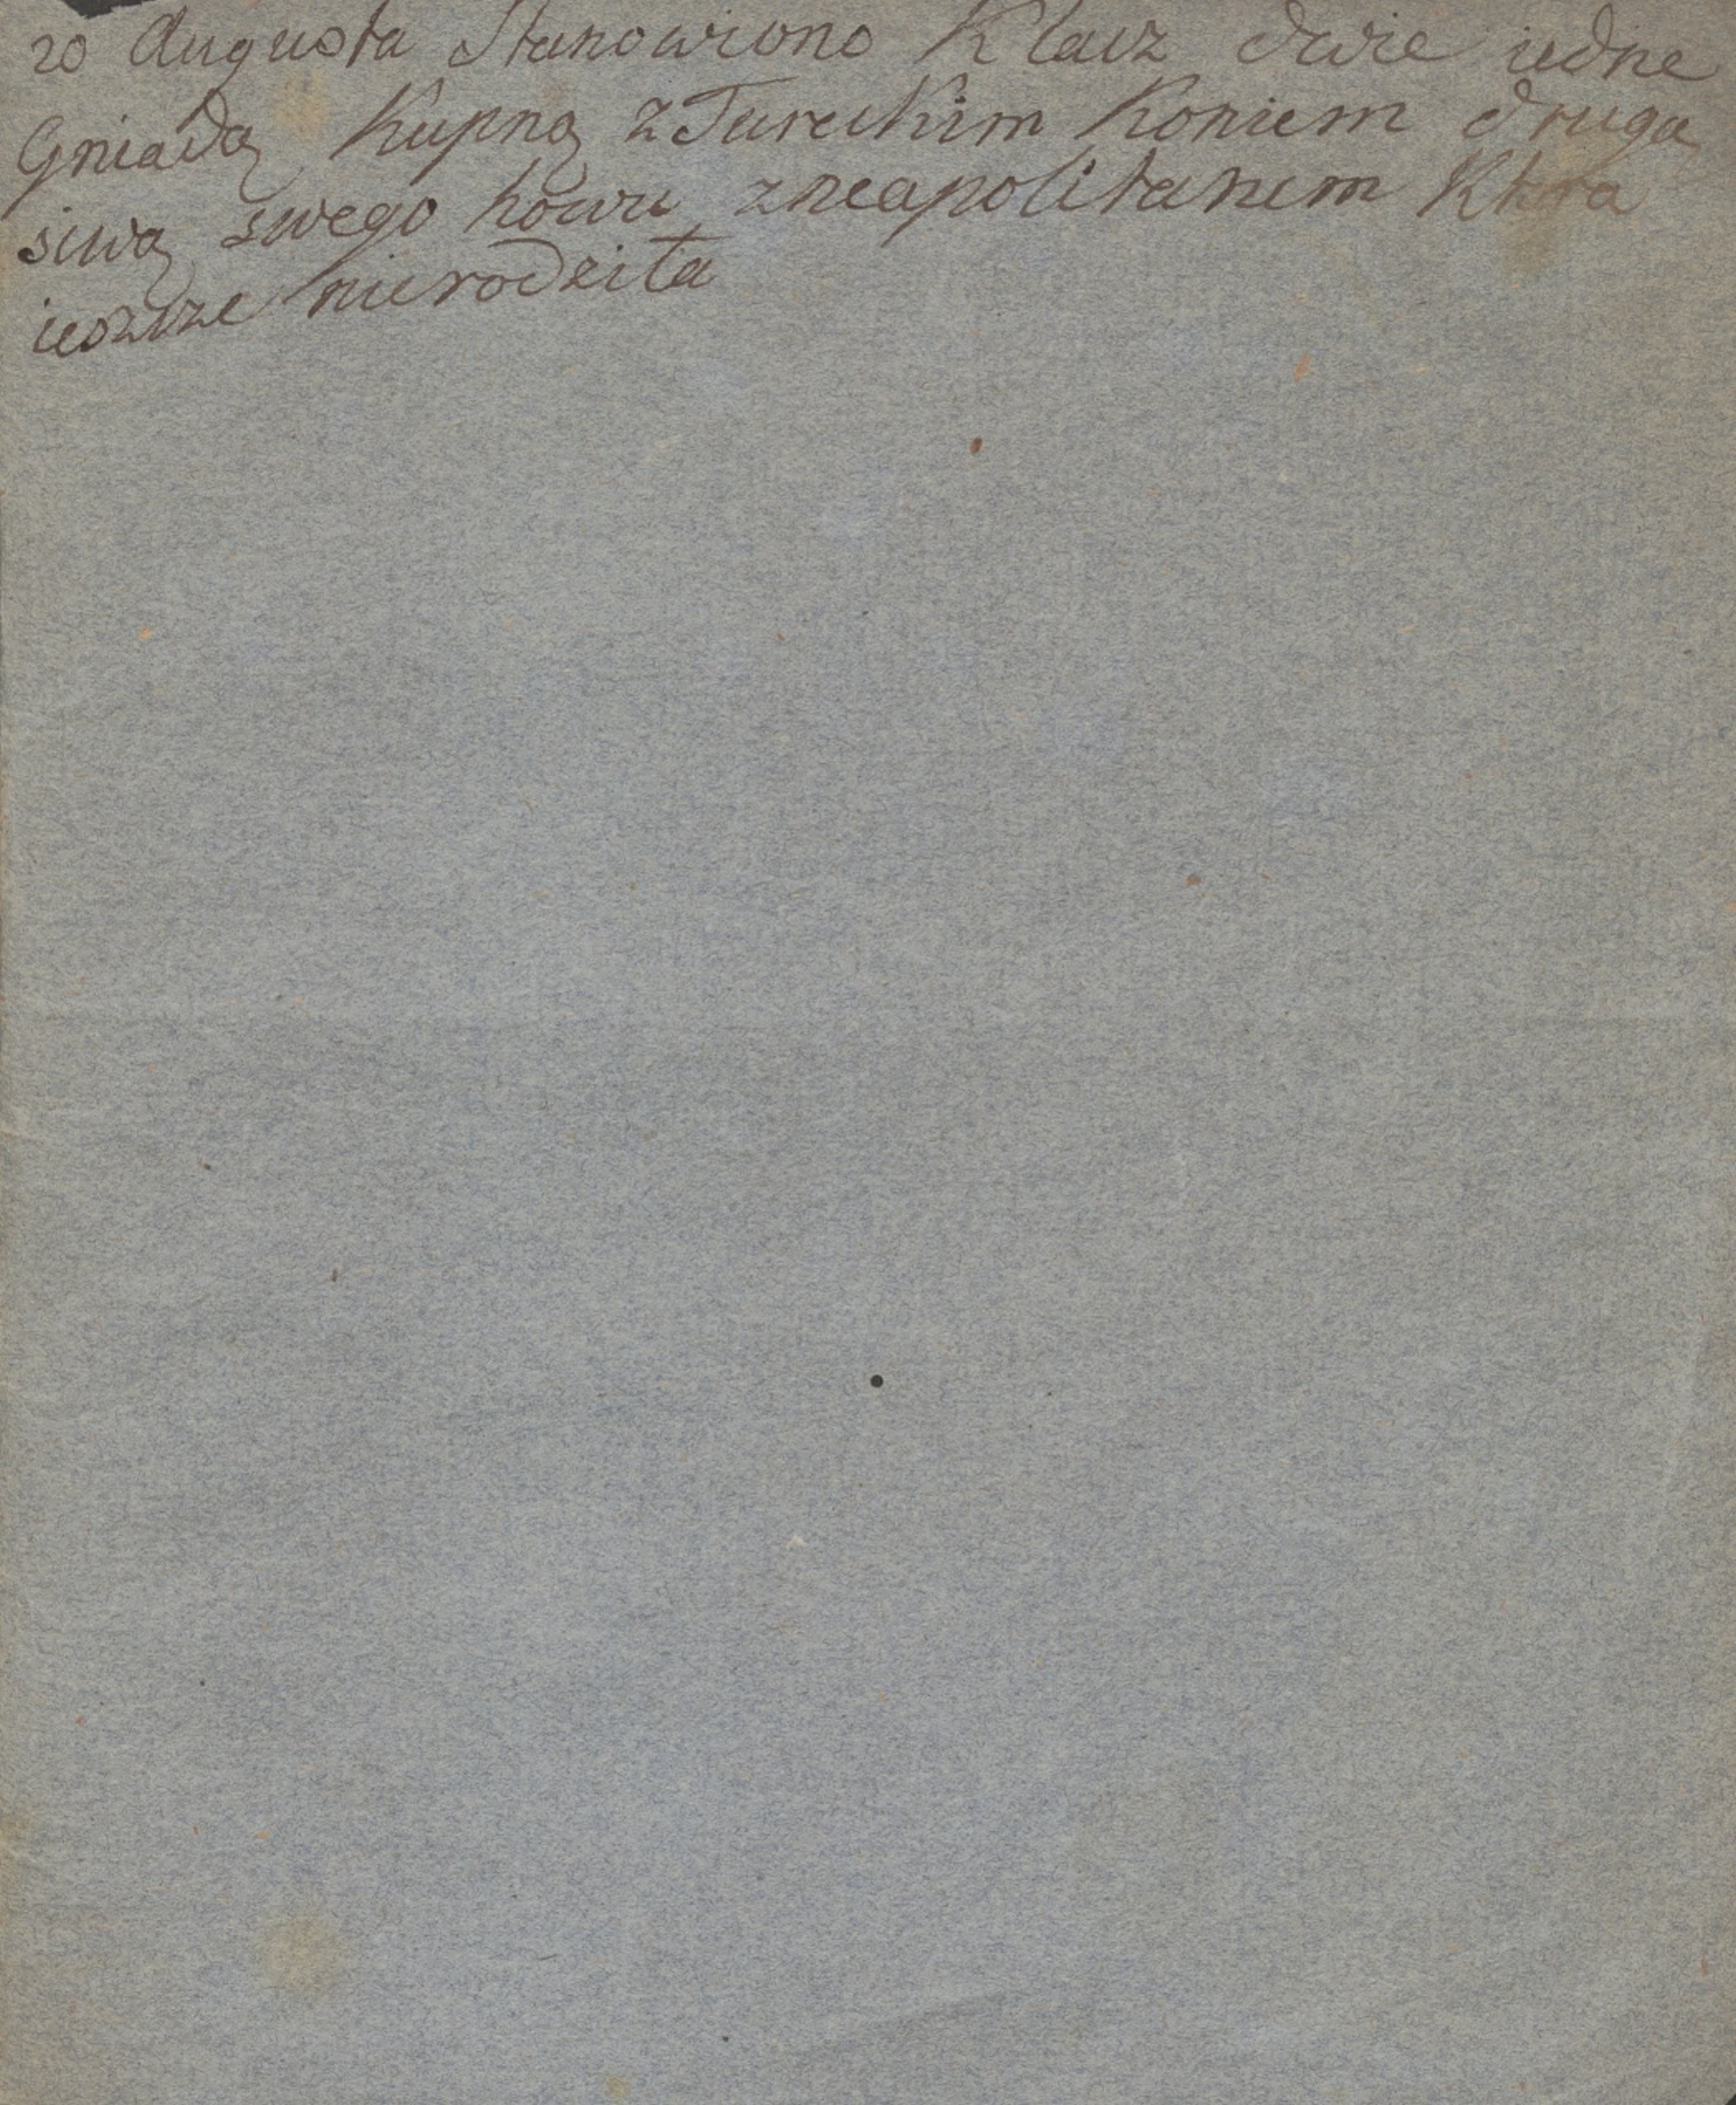 20 Augusta Stanowiono Klacz dwie iedne
Gniadą Kupną z Tureckim Koniem druga
siwą swego howu z neapolitanem Ktora
ieszcze nierodziła